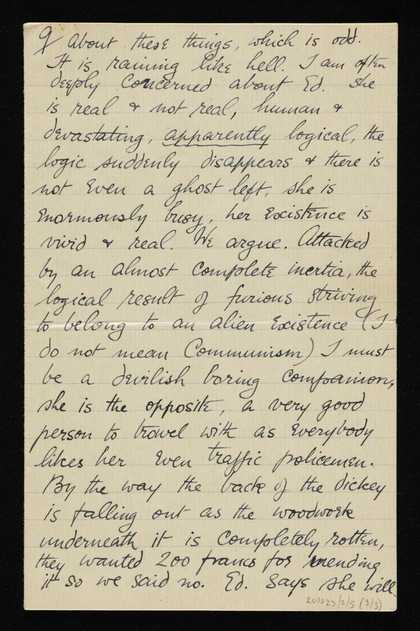 9 about these things, which is odd.
It is raining like hell. I am often
deeply concerned about Ed. she
is real & not real, human &
devastating, apparently logical, the
logic suddenly disappears & there is
not even a ghost left. she is
enormously busy, her existence is
vivid & real. We argue. Attacked
by an almost complete inertia, the
logical result of furious striving
to belong to an alien existence (I
do not mean Communism) I must
be a devilish boring companion,
she is the opposite, a very good
person to travel with as everybody
likes her even traffic policemen.
By the way the back of the dickey
is falling out as the woodwork
underneath it is completely rotten,
they wanted 200 francs for mending
it so we said no. Ed. says she will